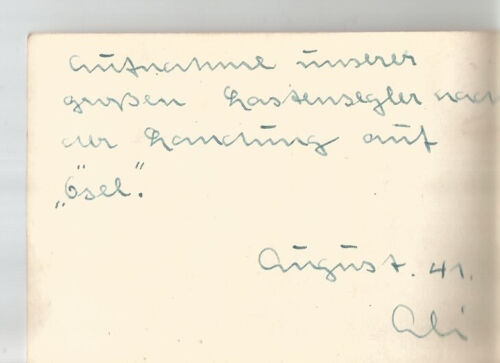 Aufnahme unserer
großen Lastensegler nach
der Landung auf
„Ösel".
August. 41.
Ali